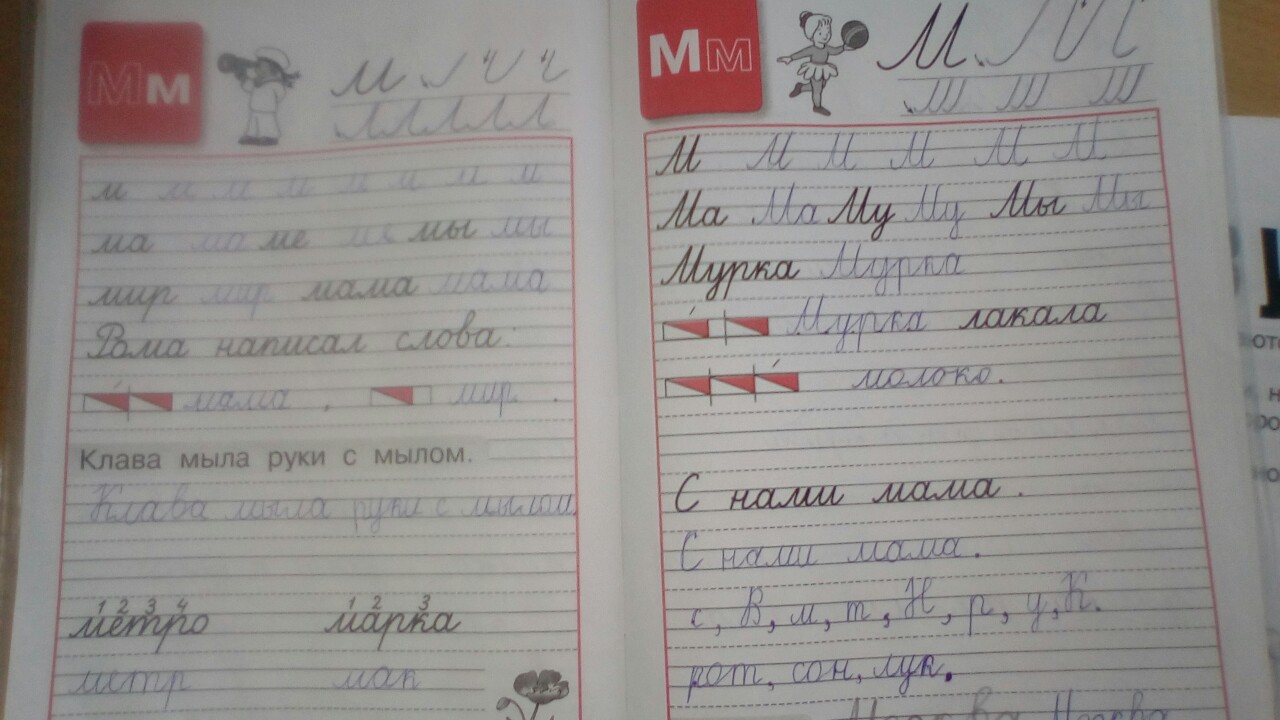 Мм
м
м м м м м м м м
ма ма ме ме мы мы
мир мир мама мама
Рома написал слова:
мама , мир .
Клава мыла руки с мылом.
Клава мыла руки с мылом.
1 2 3 4 1 2 3
метро марка
метр мак
Мм
М
М М М М М М
Ма Ма Му Му Мы Мы
Мурка Мурка
Мурка лакала
молоко.
С нами мама.
С нами мама.
с, В, м, т, Н, р, у, К.
рот, сон, лук.
Москва Москва